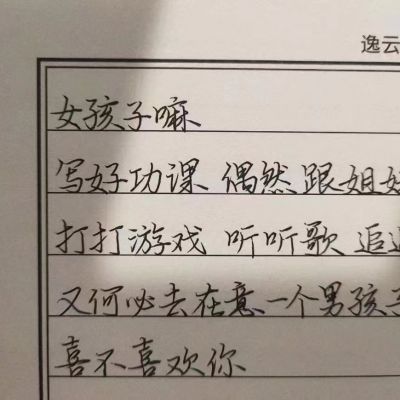 逸云
女孩子嘛
写好功课 偶然跟姐
打打游戏 听听歌 追
又何必去在意一个男孩子
喜不喜欢你